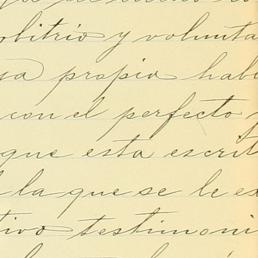 olitrio y volunta
sa propia habi
con el perfecto y
que esta escrit
la que se le ex
tivo testimoni